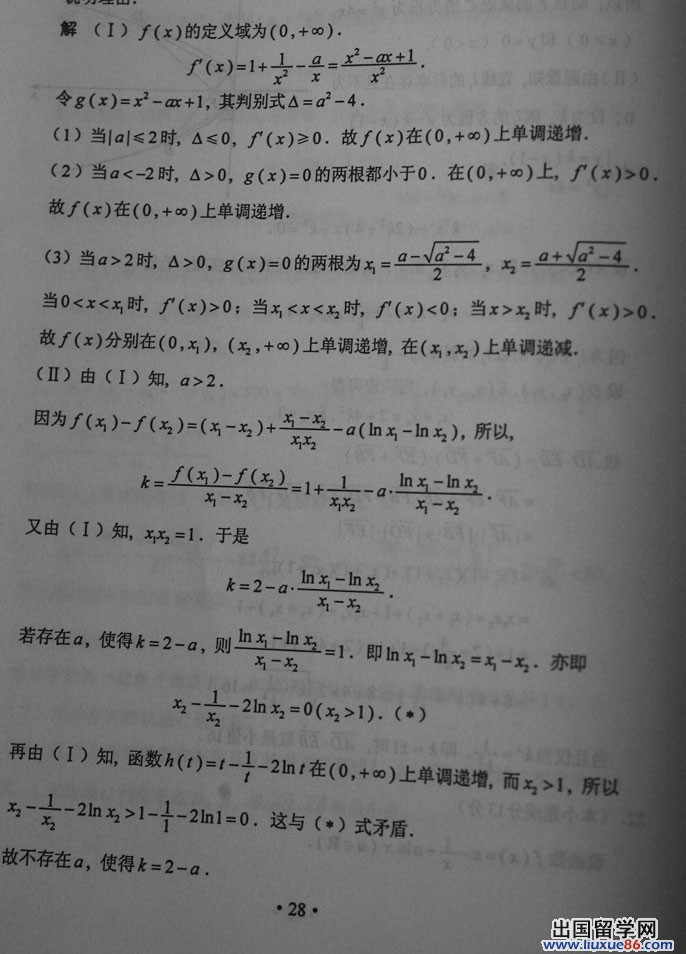 说明理由.
解 (Ⅰ) f(x)的定义域为(0,+∞).
f′(x)=1+1/x²-a/x=(x²-ax+1)/x².
令g(x)=x²-ax+1, 其判别式Δ=a²-4.
(1) 当|a|≤2时, Δ≤0, f′(x)≥0. 故f(x)在(0,+∞)上单调递增.
(2) 当a<-2时, Δ>0, g(x)=0的两根都小于0. 在(0,+∞)上, f′(x)>0.
故f(x)在(0,+∞)上单调递增.
(3) 当a>2时, Δ>0, g(x)=0的两根为x₁=(a-√(a²-4))/2, x₂=(a+√(a²-4))/2.
当0<x<x₁时, f′(x)>0; 当x₁<x<x₂时, f′(x)<0; 当x>x₂时, f′(x)>0.
故f(x)分别在(0,x₁), (x₂,+∞)上单调递增, 在(x₁,x₂)上单调递减.
(Ⅱ) 由(Ⅰ)知, a>2.
因为f(x₁)-f(x₂)=(x₁-x₂)+(x₁-x₂)/(x₁x₂)-a(ln x₁-ln x₂), 所以,
k=(f(x₁)-f(x₂))/(x₁-x₂)=1+1/(x₁x₂)-a·(ln x₁-ln x₂)/(x₁-x₂).
又由(Ⅰ)知, x₁x₂=1. 于是
k=2-a·(ln x₁-ln x₂)/(x₁-x₂).
若存在a, 使得k=2-a, 则(ln x₁-ln x₂)/(x₁-x₂)=1. 即ln x₁-ln x₂=x₁-x₂. 亦即
x₂-1/x₂-2ln x₂=0(x₂>1). (*)
再由(Ⅰ)知, 函数h(t)=t-1/t-2ln t在(0,+∞)上单调递增, 而x₂>1, 所以
x₂-1/x₂-2ln x₂>1-1/1-2ln1=0. 这与(*)式矛盾.
故不存在a, 使得k=2-a.
·28·
出国留学网
www.liuxue86.com